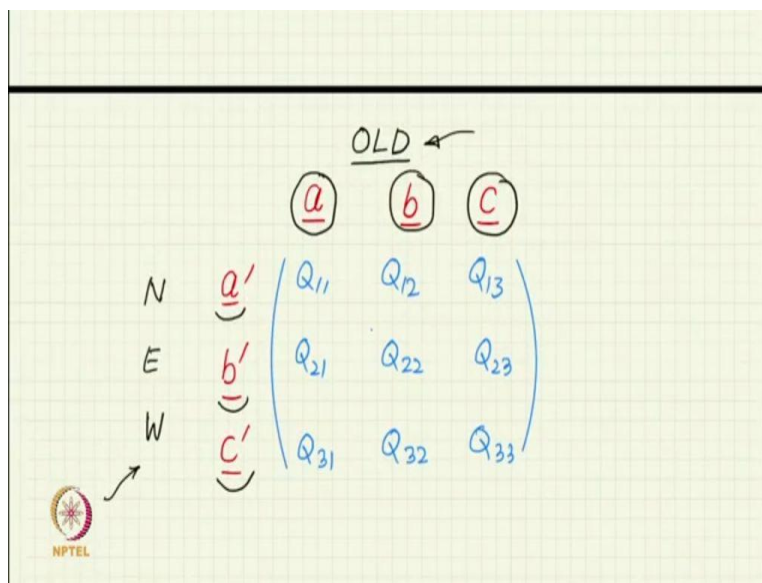 OLD
a b c
N a' Q11 Q12 Q13
E b' Q21 Q22 Q23
W c' Q31 Q32 Q33
NPTEL